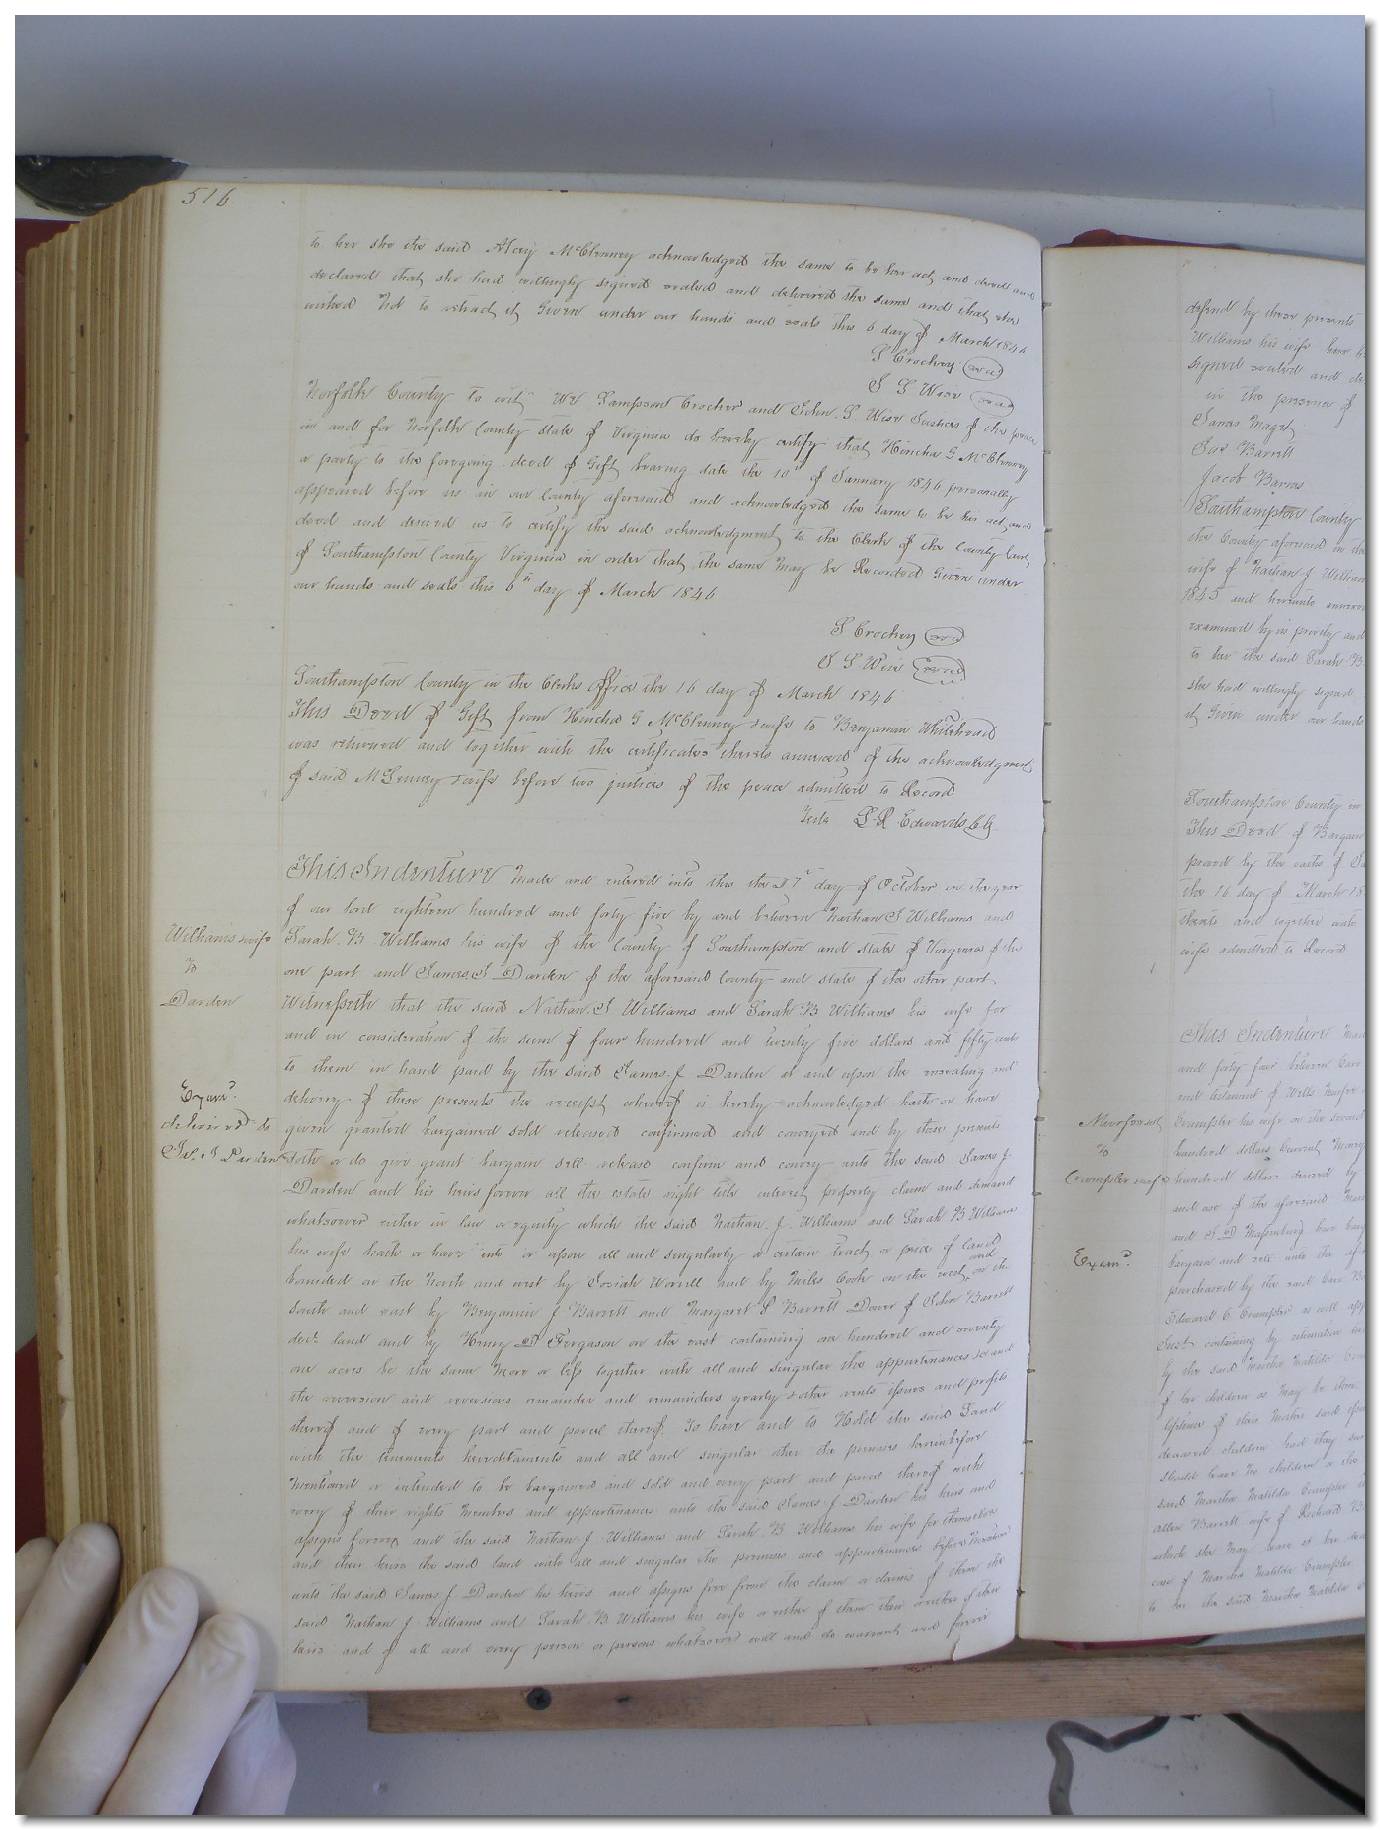 516
to her she the said Alcey McClenney acknowledged the same to be her act and deed and
declared that she had willingly signed sealed and delivered the same and that she
wished Not to retract it Given under our hands and seals this 6 day of March 1846
S Crockey seal
J S Wise seal
Norfolk County to wit We Sampson and John S. Wise Justices of the peace
in and for Norfolk County State of Virginia do hereby certify that Hincha G McClenney
a party to the foregoing deed of Gift bearing date the 10th of January 1846 personally
appeared before us in our County aforesaid and acknowledged the same to be his act and
deed and desired us to certify the said acknowledgment to the Clerk of the County Court
of Southampton County Virginia in order that the same may be Recorded Given under
our hands and seals this 6th day of March 1846
S Crockey seal
J S Wise seal
Southampton County in the Clerks Office the 16 day of March 1846
This Deed of Gift from Hincha G McClenney & wife to Benjamin Whitehead
was returned and together with the certificates thereto annexed of the acknowledgment
of said & wife before two justices of the peace admitted to Record
Teste L R Edwards
This Indenture Made and entered into this the day of October in the year
of our lord eighteen hundred and forty five by and between Nathan J Williams and
Williams & wife
to
Darden
Sarah B Williams his wife of the County of Southampton and State of Virginia of the
one part and James J Darden of the aforesaid County and state of the other part
Witnesseth that the said Nathan J Williams and Sarah B Williams his wife for
and in consideration of the sum of four hundred and twenty five dollars and fifty cents
to them in hand paid by the said James J Darden at and upon the ensealing and
Examd.
delivered to
Jas. J Darden
delivery of these presents the receipt whereof is hereby acknowledged hath or have
given granted bargained sold released confirmed and conveyed and by these presents
doth or do give grant bargain sell release confirm and convey unto the said James J
Darden and his heirs forever all the estate right title interest property claim and demand
whatsoever either in law or equity which the said Nathan J Williams and Sarah B Williams
his wife hath or have into or upon all and singularly a certain tract or piece of land
bounded on the North and west by Josiah Worrell and by Miles Cook on the west and on the
south and east by Benjamin J Barrett and Margaret S Barrett Dower of John Barrett
decd. land and by Henry D Ferguson on the east containing one hundred and seventy
one acres be the same More or less together with all and singular the appurtenances and
the reversion and reversions remainder and remainders yearly & other rents issues and profits
thereof and of every part and parcel thereof. To have and to Hold the said Land
with the tenements hereditaments and all and singular other the premises hereinbefore
Mentioned or intended to be bargained and sold and every part and parcel thereof with
every of their rights Members and appurtenances unto the said James J Darden his heirs and
assigns forever and the said Nathan J Williams and Sarah B Williams his wife for themselves
and their heirs the said land with all and singular the premises and appurtenances before Mentioned
unto the said James J Darden his heirs and assigns free from the claim or claims of them the
said Nathan J Williams and Sarah B Williams his wife or either of them their or either of their
heirs and of all and every person or persons whatsoever will and do warrant and forever
defend by these presents
Williams his wife have
signed sealed and
in the presence of
James Magett
Jas Barrett
Jacob Barnes
Southampton County
the County aforesaid in the
wife of Nathan J William
1845 and hereunto annexed
examined by us privily and
to her the said Sarah B
she had willingly signed
it Given under our hands
Southampton County in
This Deed of Bargain
proved by the oaths of
the 16 day of March 18
thereto and together with
wife admitted to Record
This Indenture Made
and forty four between
and testament of Wills
Crumpler his wife on the second
to
Crumpler & wife
hundred dollars Current Money
hundred dollars
and use of the aforesaid
Examd.
bargain and sell unto the
purchased by the said
Edward C Crumpler as will
containing by estimation
by the said Martha Matilda
of her children as May be
deceased children had they
should leave No children
said Martha Matilda Crumpler
Barrett wife of Richard
which she May
case of Martha Matilda Crumpler
to her the said Martha Matilda